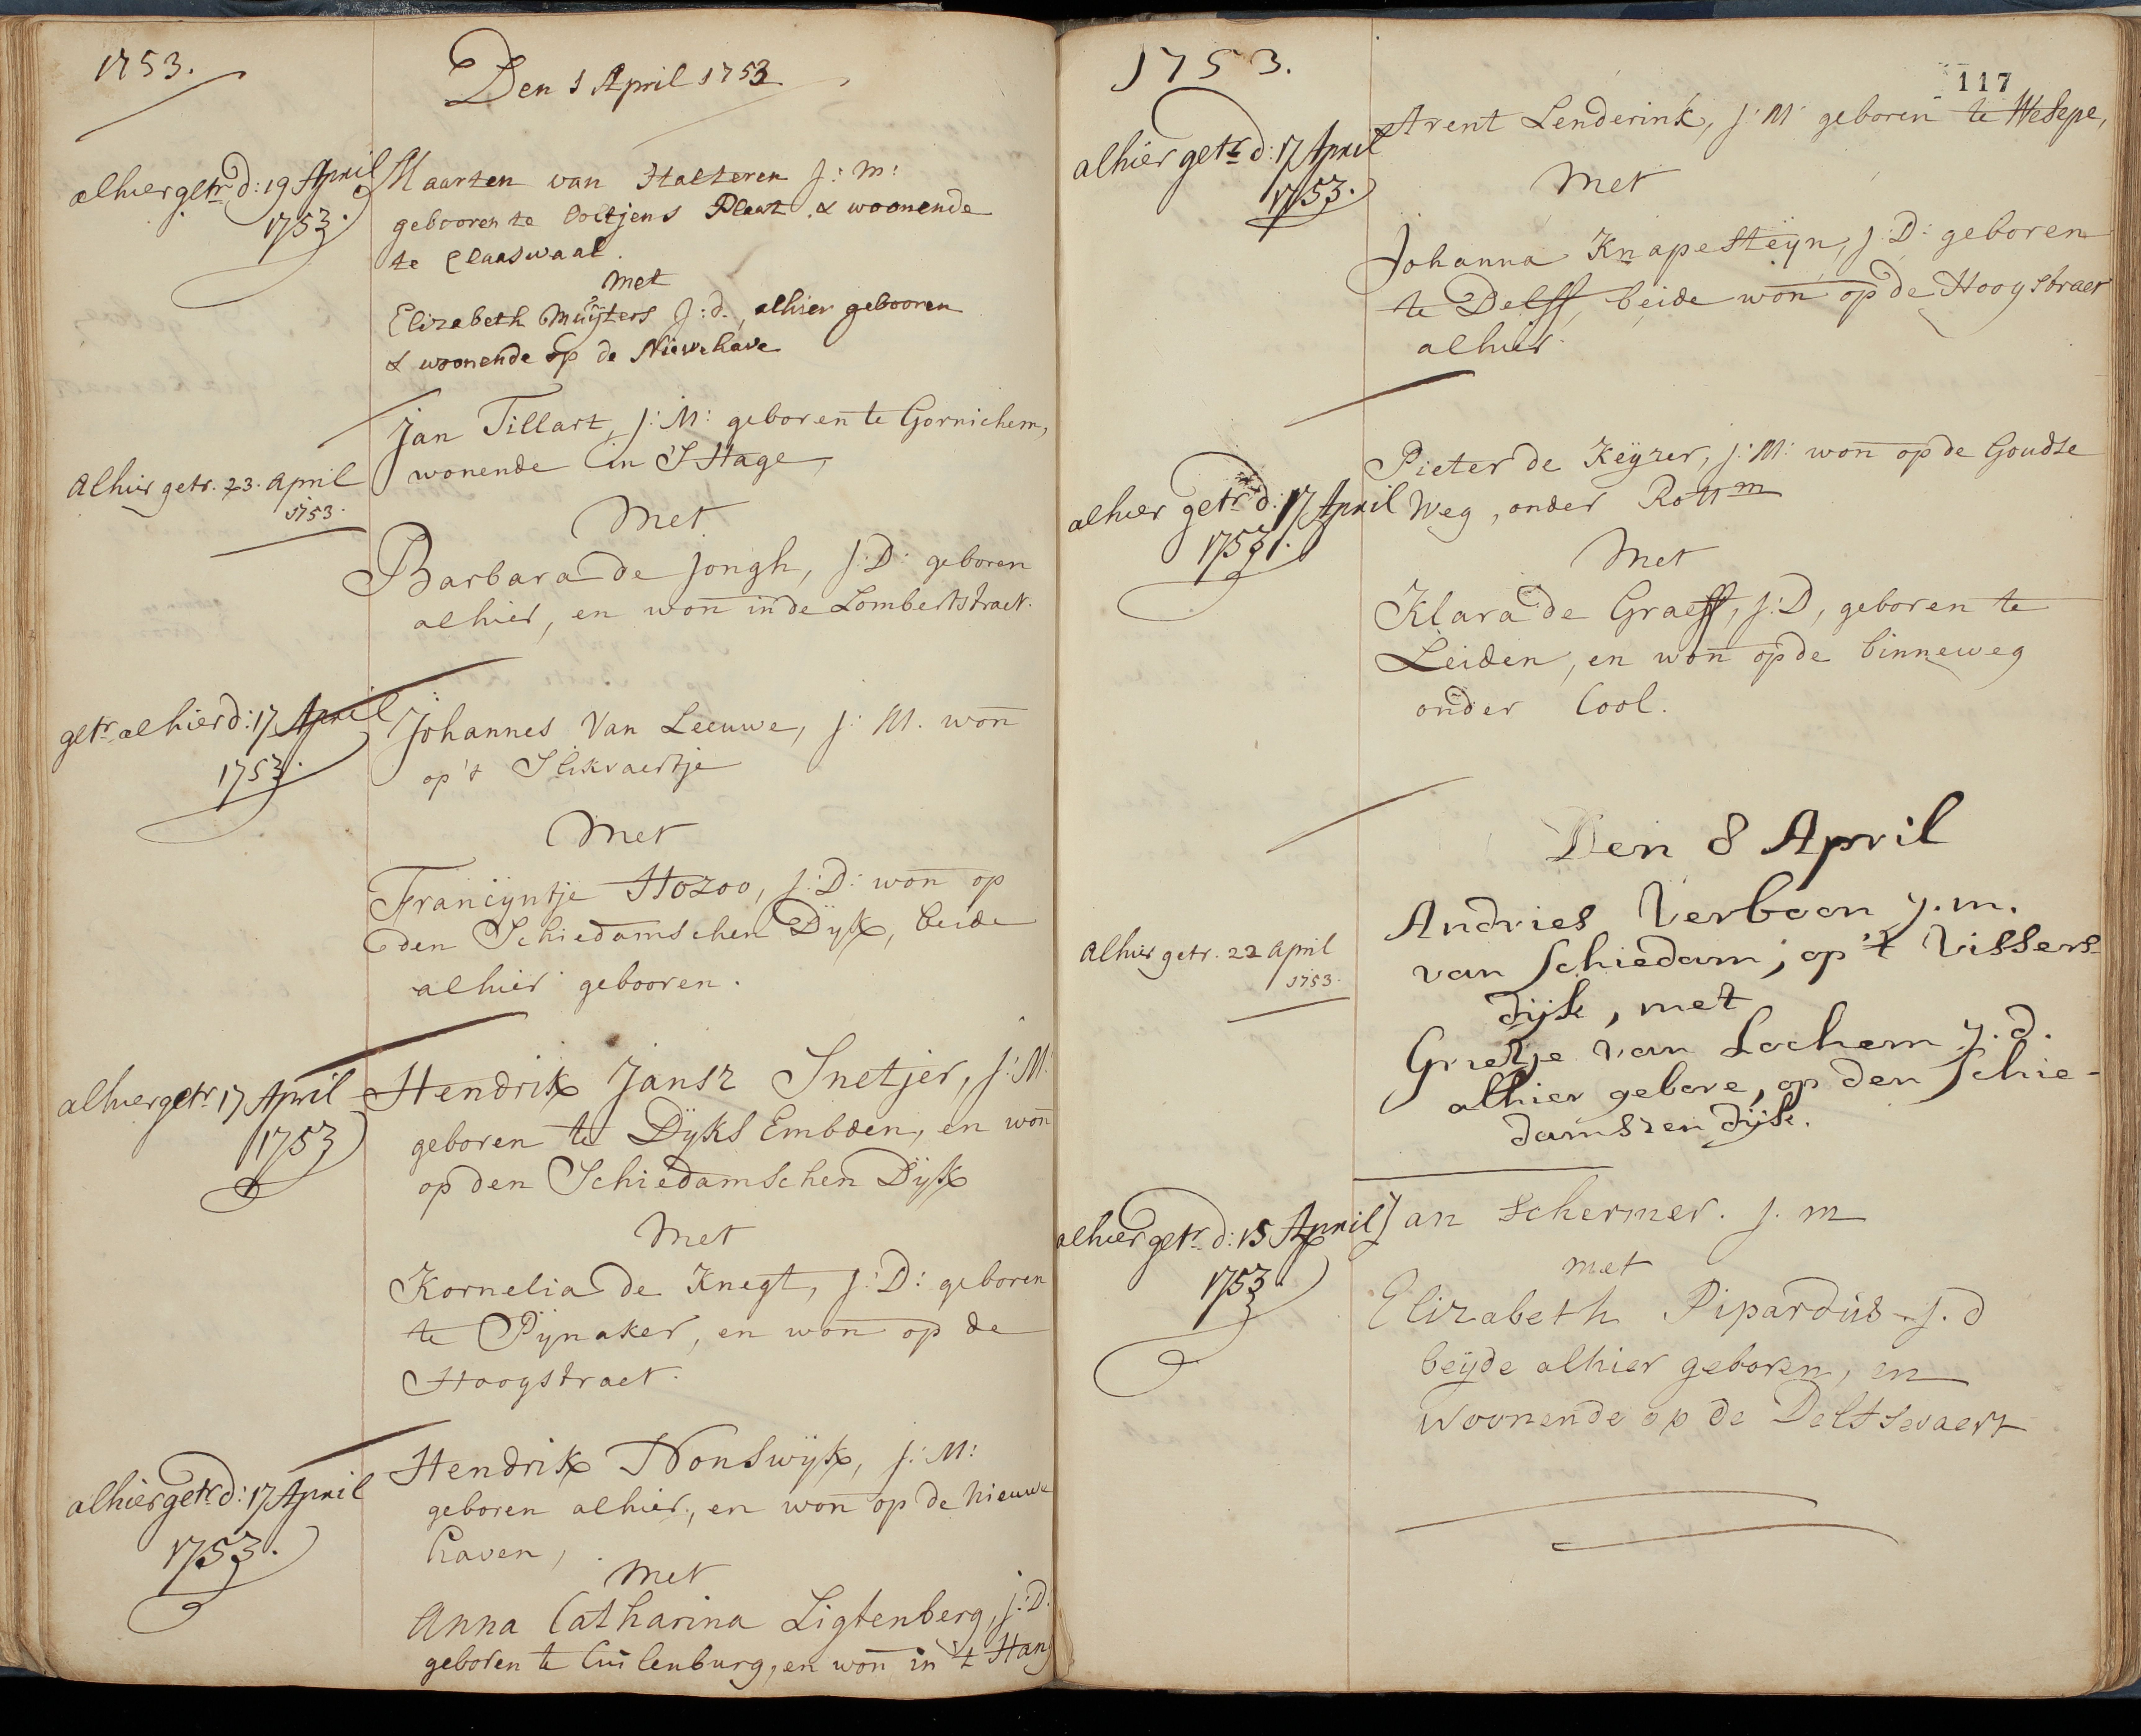 1753.
Den 1 April 1753
alhier getr d: 19 April
1753.
Maarten van Halteren j: m:
gebooren te Ooltjens Plaat & woonende
te Claaswaal.
met
Elizabeth Muÿters j: d. alhier gebooren
& woonende op de Nieuwehave
Alhier getr. 23. April
1753.
Jan Tillart, j: M: geboren te Gornichem,
wonende in S Hage,
Met
Barbara de Jongh, J: D: geboren
alhier, en won in de Lombertstraet.
getr alhier d: 17 April
1753.
Johannes Van Leeuwe, j: M. won
op 't Slikvaertje
Met
Francÿntje Hozoo, J: D: won op
den Schiedamschen Dÿk, beide
alhier gebooren.
alhier getr 17 April
1753
Hendrik Jansz Snetjer, J: M:
geboren te Dÿks Embden, en won
op den Schiedamschen Dÿk
Met
Kornelia de Knegt, J: D: geboren
te Pÿnaker, en won op de
Hoogstraet.
alhier getr d: 17 April
1753.
Hendrik Nonswÿk, j: M:
geboren alhier, en won op de nieuwe
haven,
Met
Anna Catharina Ligtenberg, j: D.
geboren te Cuilenburg, en won in 't Hang
1753.
117
alhier getr d: 17 April
1753.
Arent Lenderink, j: M: geboren te Wesepe,
Met
Johanna Knapesteÿn, j: D: geboren
te Delff, beide won op de Hoogstraet
alhier.
alhier getr d: 17 April
1753.
Pieter de Keÿzer, j: M: won op de Goudse
Weg, onder Rottm
Met
Klara de Graeff, j: D, geboren te
Leiden, en won op de binneweg
onder Cool.
Den 8 April
Alhier getr. 22 April
1753.
Andries Verboon j. m.
van Schiedam, op 't Vissers-
dijk, met
Grietje van Lochem j. d.
alhier gebore, op den Schie-
damszen dijk.
alhier getr d: 15 April
1753.
Jan Schermer. j. m
met
Elizabeth Pipardus j. d
beÿde alhier geboren, en
woonende op de Delftsevaert